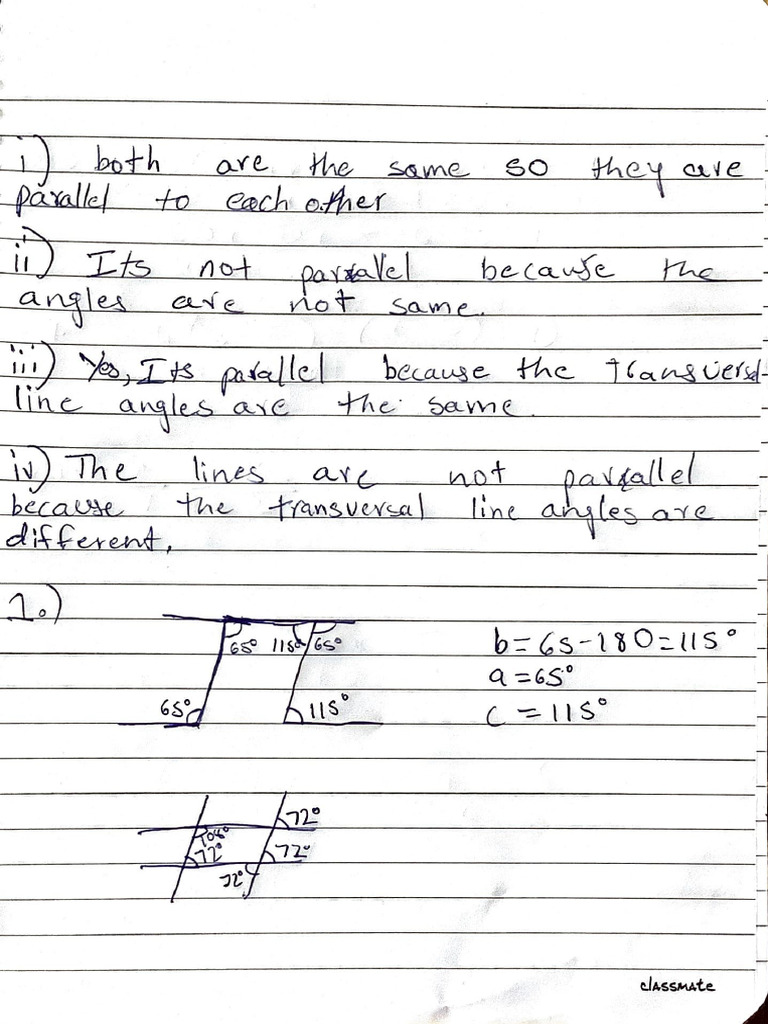 i) both are the same so they are
parallel to each other
ii) Its not parallel because the
angles are not same.
iii) Yes, Its parallel because the transversal
line angles are the same.
iv) The lines are not parallel
because the transversal line angles are
different.
1.)
65° 115° 65°
b = 65 - 180 = 115°
a = 65°
65° 115°
c = 115°
72°
108°
72° 72°
72°
classmate